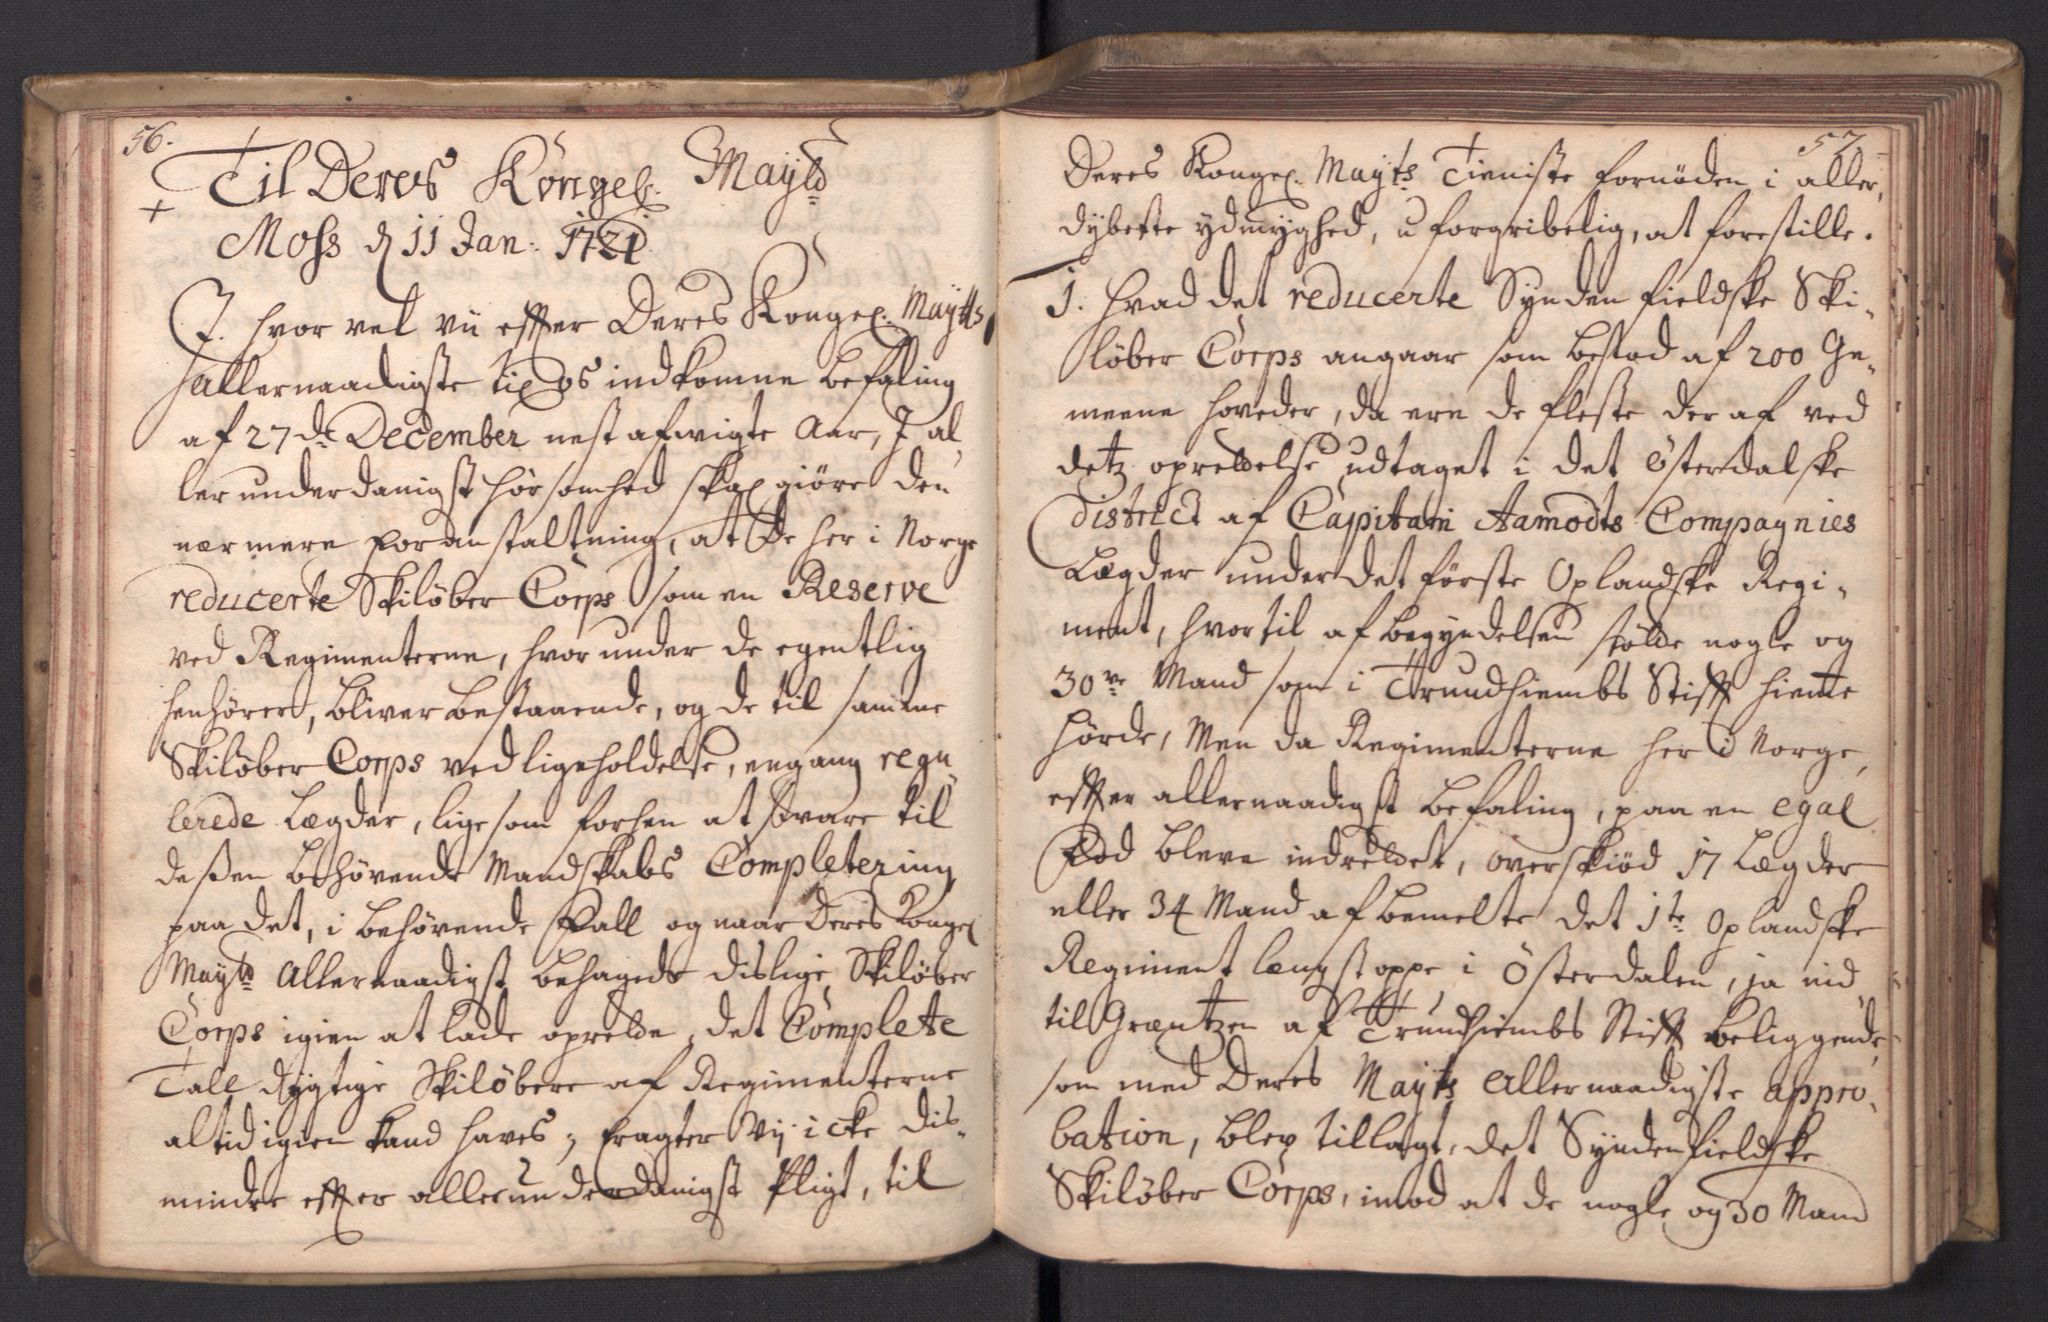 56.
Til Deres Kongel. Mayts
Moss d 11 Jan: 1721
J hvor vel vii effter Deres Kongel. Maytts
allernaadigste til os indkomne befaling
af 27de December nest afwigte Aar, J al,
ler underdanigst hörsomhed skal giöre den
nærmere foranstaltning, at de her i Norge
reducerte Skilöber Corps som en Reserve
ved Regimenterne, hvor under de egentlig
henhörer, bliver bestaaende, og de til samme
Skilöber Corps vedligeholdelse, engang regu
lerede Lægder, lige som forhen at svare til
deßen behövende Mandskabs Completering
paa det, i behövende Fall og naar Deres Kongel
Mayts Allernaadigst behagede deslige Skilöber
Corps igien at lade oprette, det Complete
Tall dygtige Skilöbere af Regimenterne
altid igien kand haves; fragter Vij icke dis-
mindre effter allerunderdanigst Pligt, til
57
Deres Kongel. Mayts Tieniste fornöden i aller,
dybeste ydmyghed, uforgribelig, at forestille.
1. Hvad det reducerte Synden fieldske Ski-
löber Corps angaar som bestod af 200 Ge-
meene hoveder, da ere de fleste der af ved
detz oprettelse udtaget i det Österdalske
district af Capitain Aamodts Compagnies
Lægder under det förste Oplandske Regi-
ment, hvortil af begyndelsen stölde nogle og
30ve Mand som i Trundhiembs Stifft hiemme
hörde, Men da Regimenterne her i Norge,
effter allernaadigst befaling, paa en egal
Fod bleve indrettet, overskiöd 17 Lægder
eller 34 Mand af bemelte det 1te Oplandske
Regiment længst oppe i Österdalen, ja ind
til Græntzen af Trundhiembs Stifft beliggende,
som med Deres Mayts Allernaadigste appro-
bation, blev tillagt det Syndenfieldske
Skilöber Corps, imod at de nogle og 30 Mand